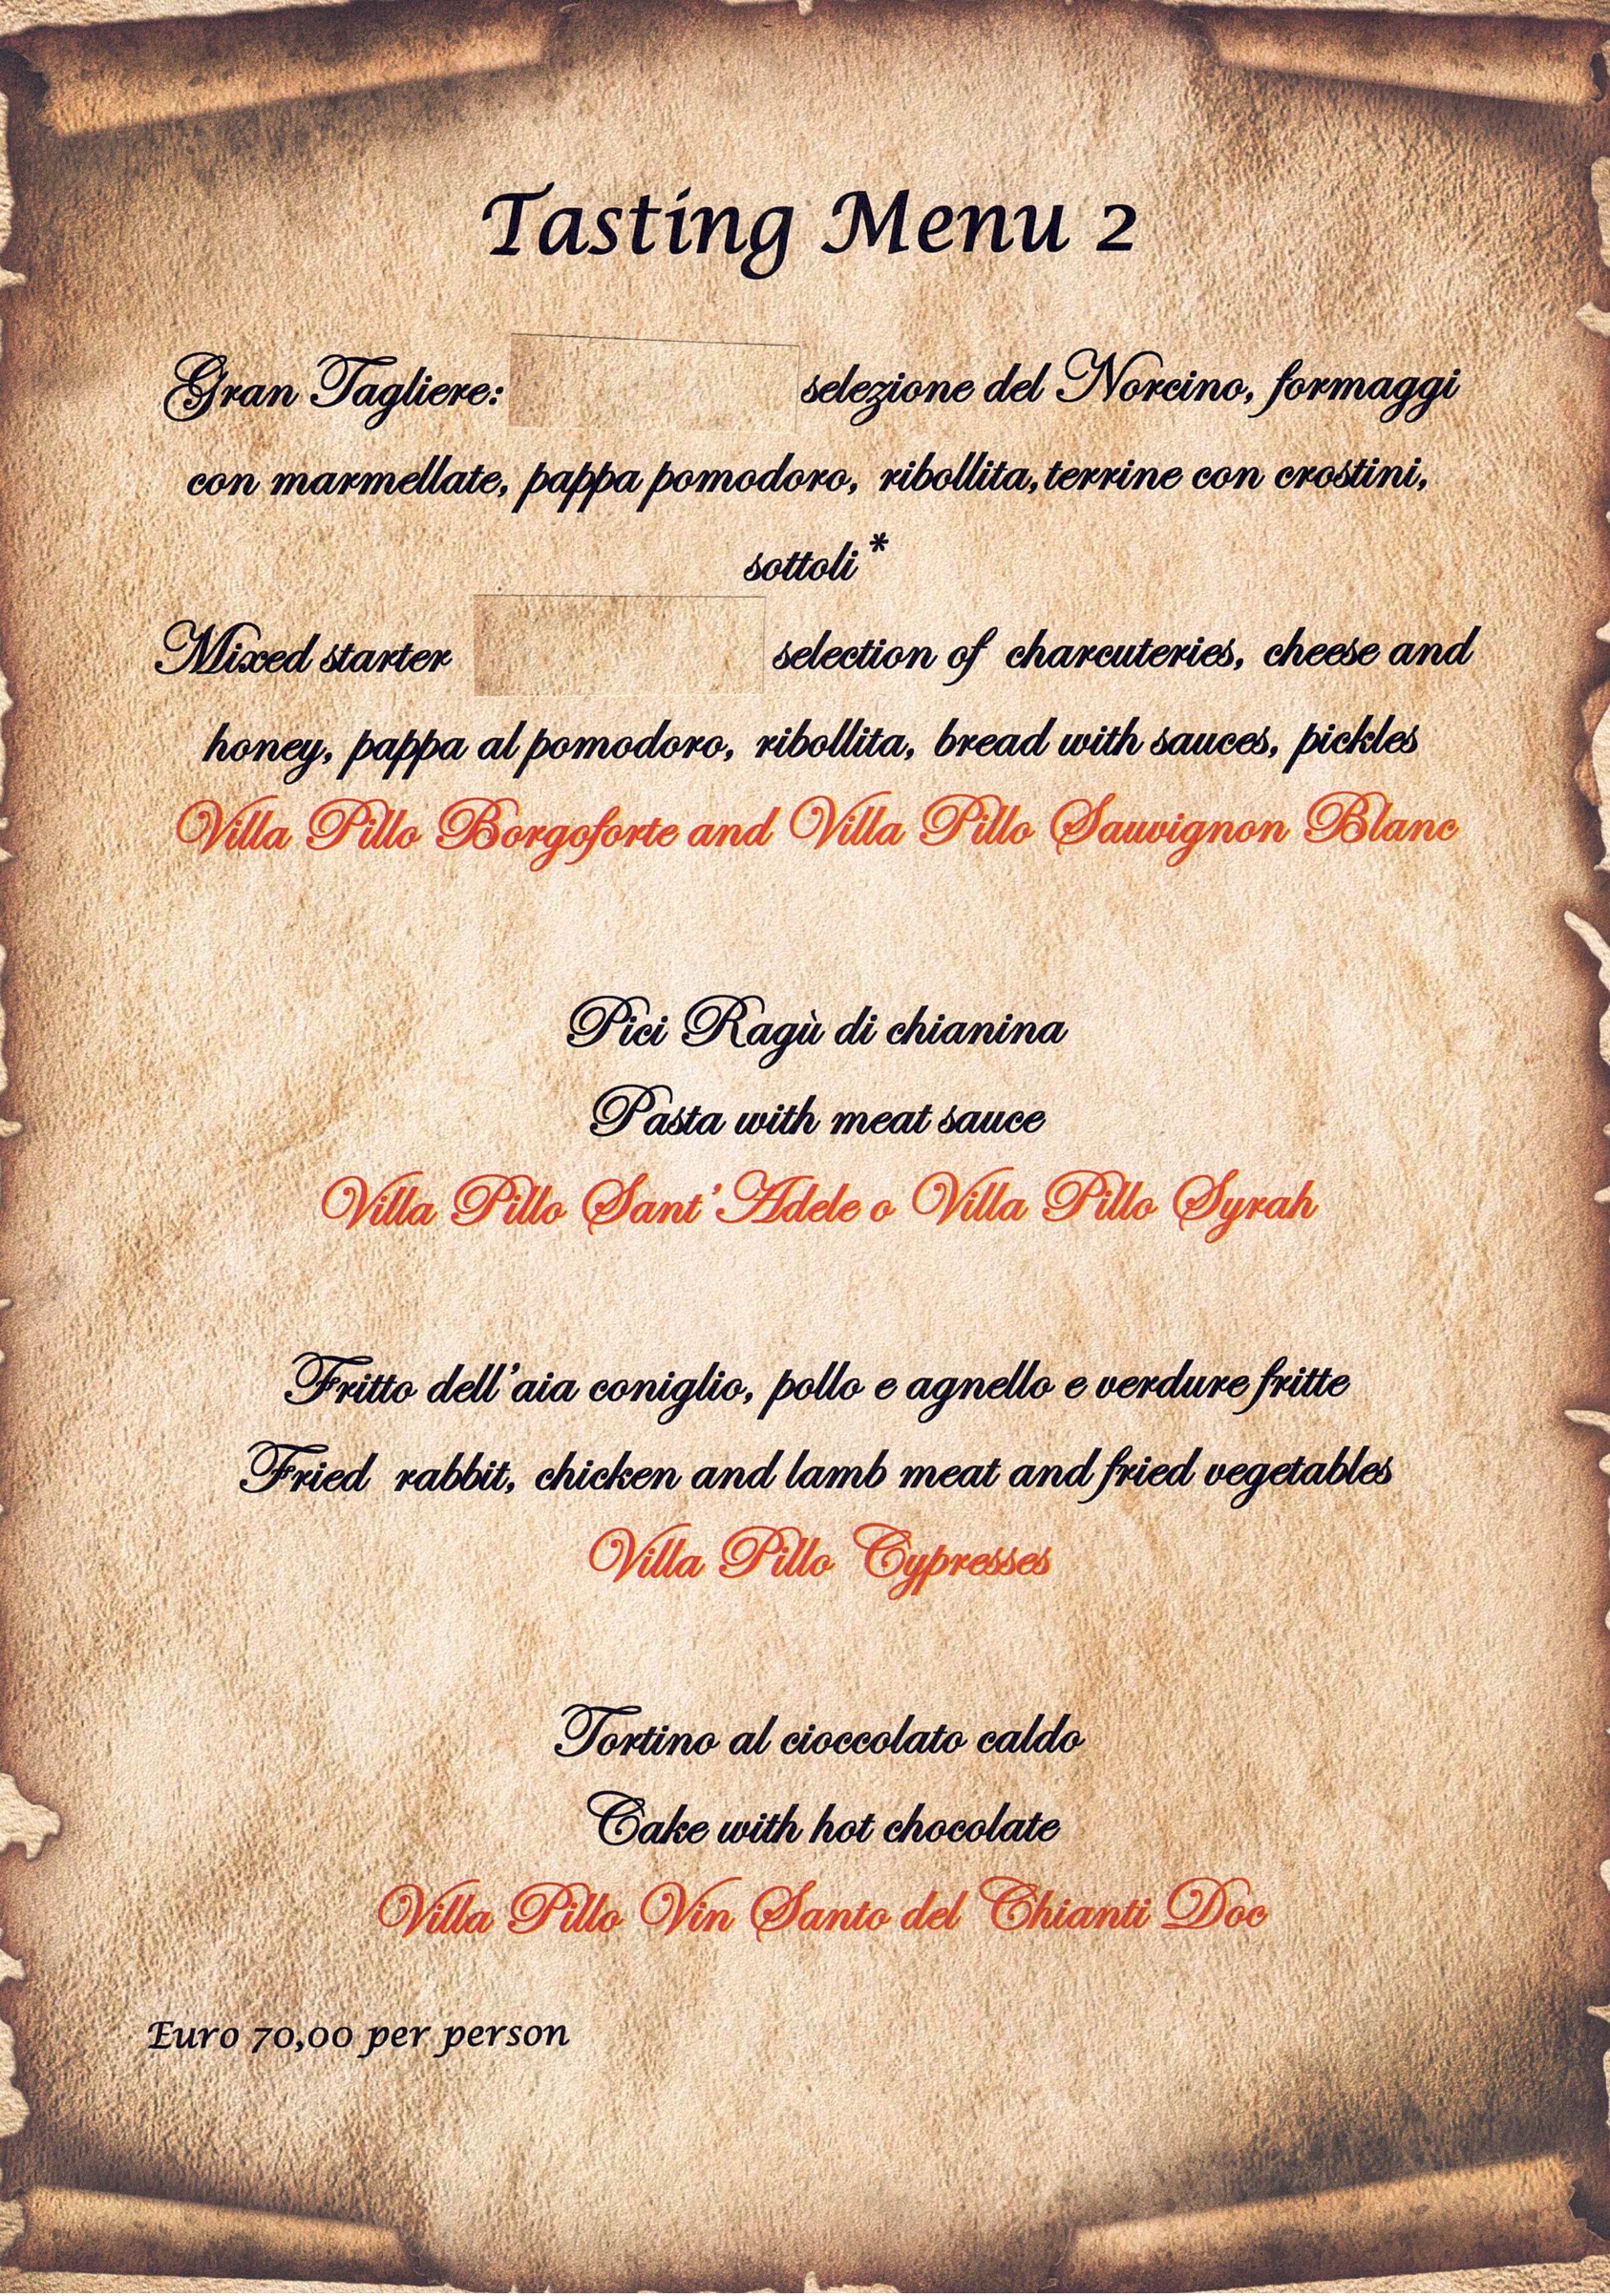 Tasting Menu 2
Gran Tagliere: selezione del Norcino, formaggi
con marmellate, pappa pomodoro, ribollita, terrine con crostini,
sottoli*
Mixed starter selection of charcuteries, cheese and
honey, pappa al pomodoro, ribollita, bread with sauces, pickles
Villa Pillo Borgoforte and Villa Pillo Sauvignon Blanc
Pici Ragù di chianina
Pasta with meat sauce
Villa Pillo Sant'Adele o Villa Pillo Syrah
Fritto dell'aia coniglio, pollo e agnello e verdure fritte
Fried rabbit, chicken and lamb meat and fried vegetables
Villa Pillo Cypresses
Tortino al cioccolato caldo
Cake with hot chocolate
Villa Pillo Vin Santo del Chianti Doc
Euro 70,00 per person